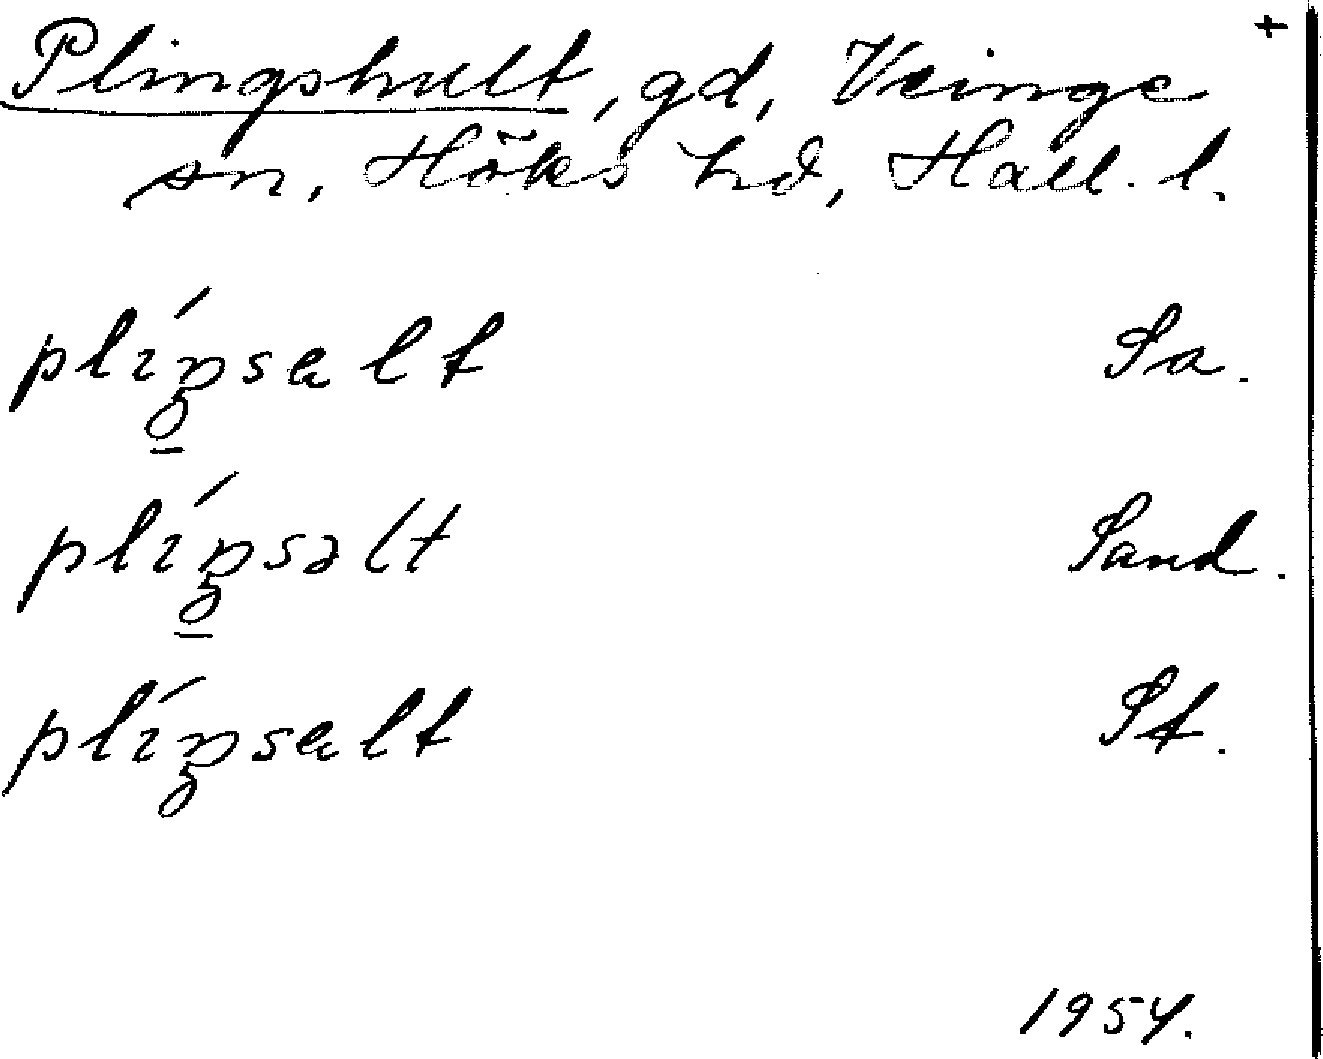 Plingshult, gd, Veinge +
sn, Höks hd, Hall. l.
plíŋsalt Sa.
plíŋsəlt Sand.
plíŋsalt St.
1954.